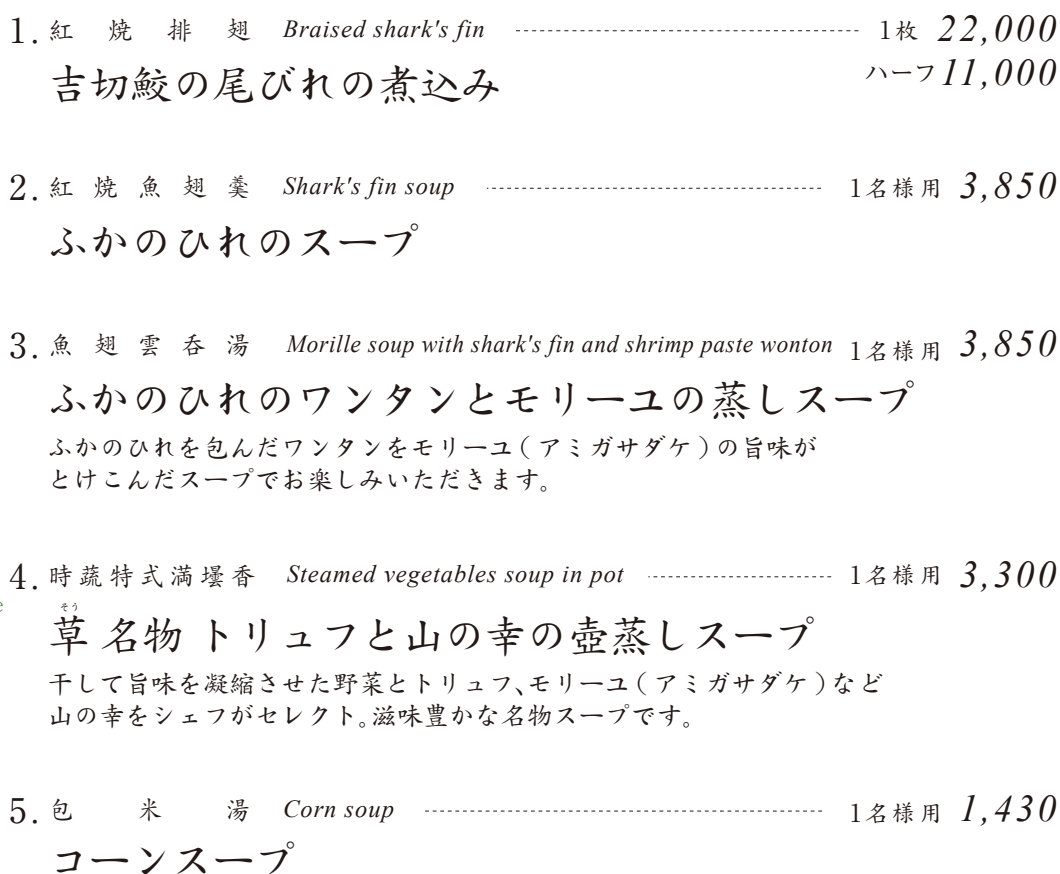 1. 紅焼排翅 Braised shark's fin 1枚 22,000
吉切鮫の尾びれの煮込み ハーフ 11,000
2. 紅焼魚翅羹 Shark's fin soup 1名様用 3,850
ふかのひれのスープ
3. 魚翅雲呑湯 Morille soup with shark's fin and shrimp paste wonton 1名様用 3,850
ふかのひれのワンタンとモリーユの蒸しスープ
ふかのひれを包んだワンタンをモリーユ(アミガサダケ)の旨味が
とけこんだスープでお楽しみいただきます。
4. 時蔬特式満壜香 Steamed vegetables soup in pot 1名様用 3,300
そう
草 名物 トリュフと山の幸の壺蒸しスープ
干して旨味を凝縮させた野菜とトリュフ、モリーユ(アミガサダケ)など
山の幸をシェフがセレクト。滋味豊かな名物スープです。
5. 包米湯 Corn soup 1名様用 1,430
コーンスープ